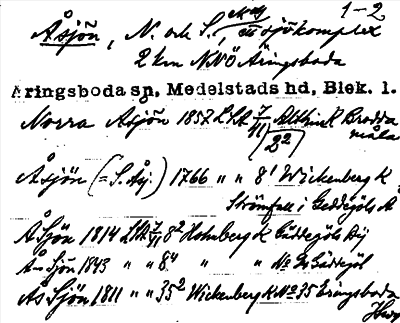 1-2
Åsjön, N. och S., ett sjökomplex
2 km NNÖ Åringsboda
Åringsboda sn, Medelstads hd, Blek. l.
Norra Åsjön 1857 LSA 7/11 Brodda
22 måla
Åsjön (= S. Åsj.) 1766 " " 8¹ Wickenberg K
Strömfall i Geddegöls Å
Åsjön 1814 LSA 7/11 8² Holmberg K Gäddegöls
Åsjön 1843 " " 8⁴ " " Gäddegöl
Ås Sjön 1811 " " 35² Wickenberg K No 35 Eringsboda